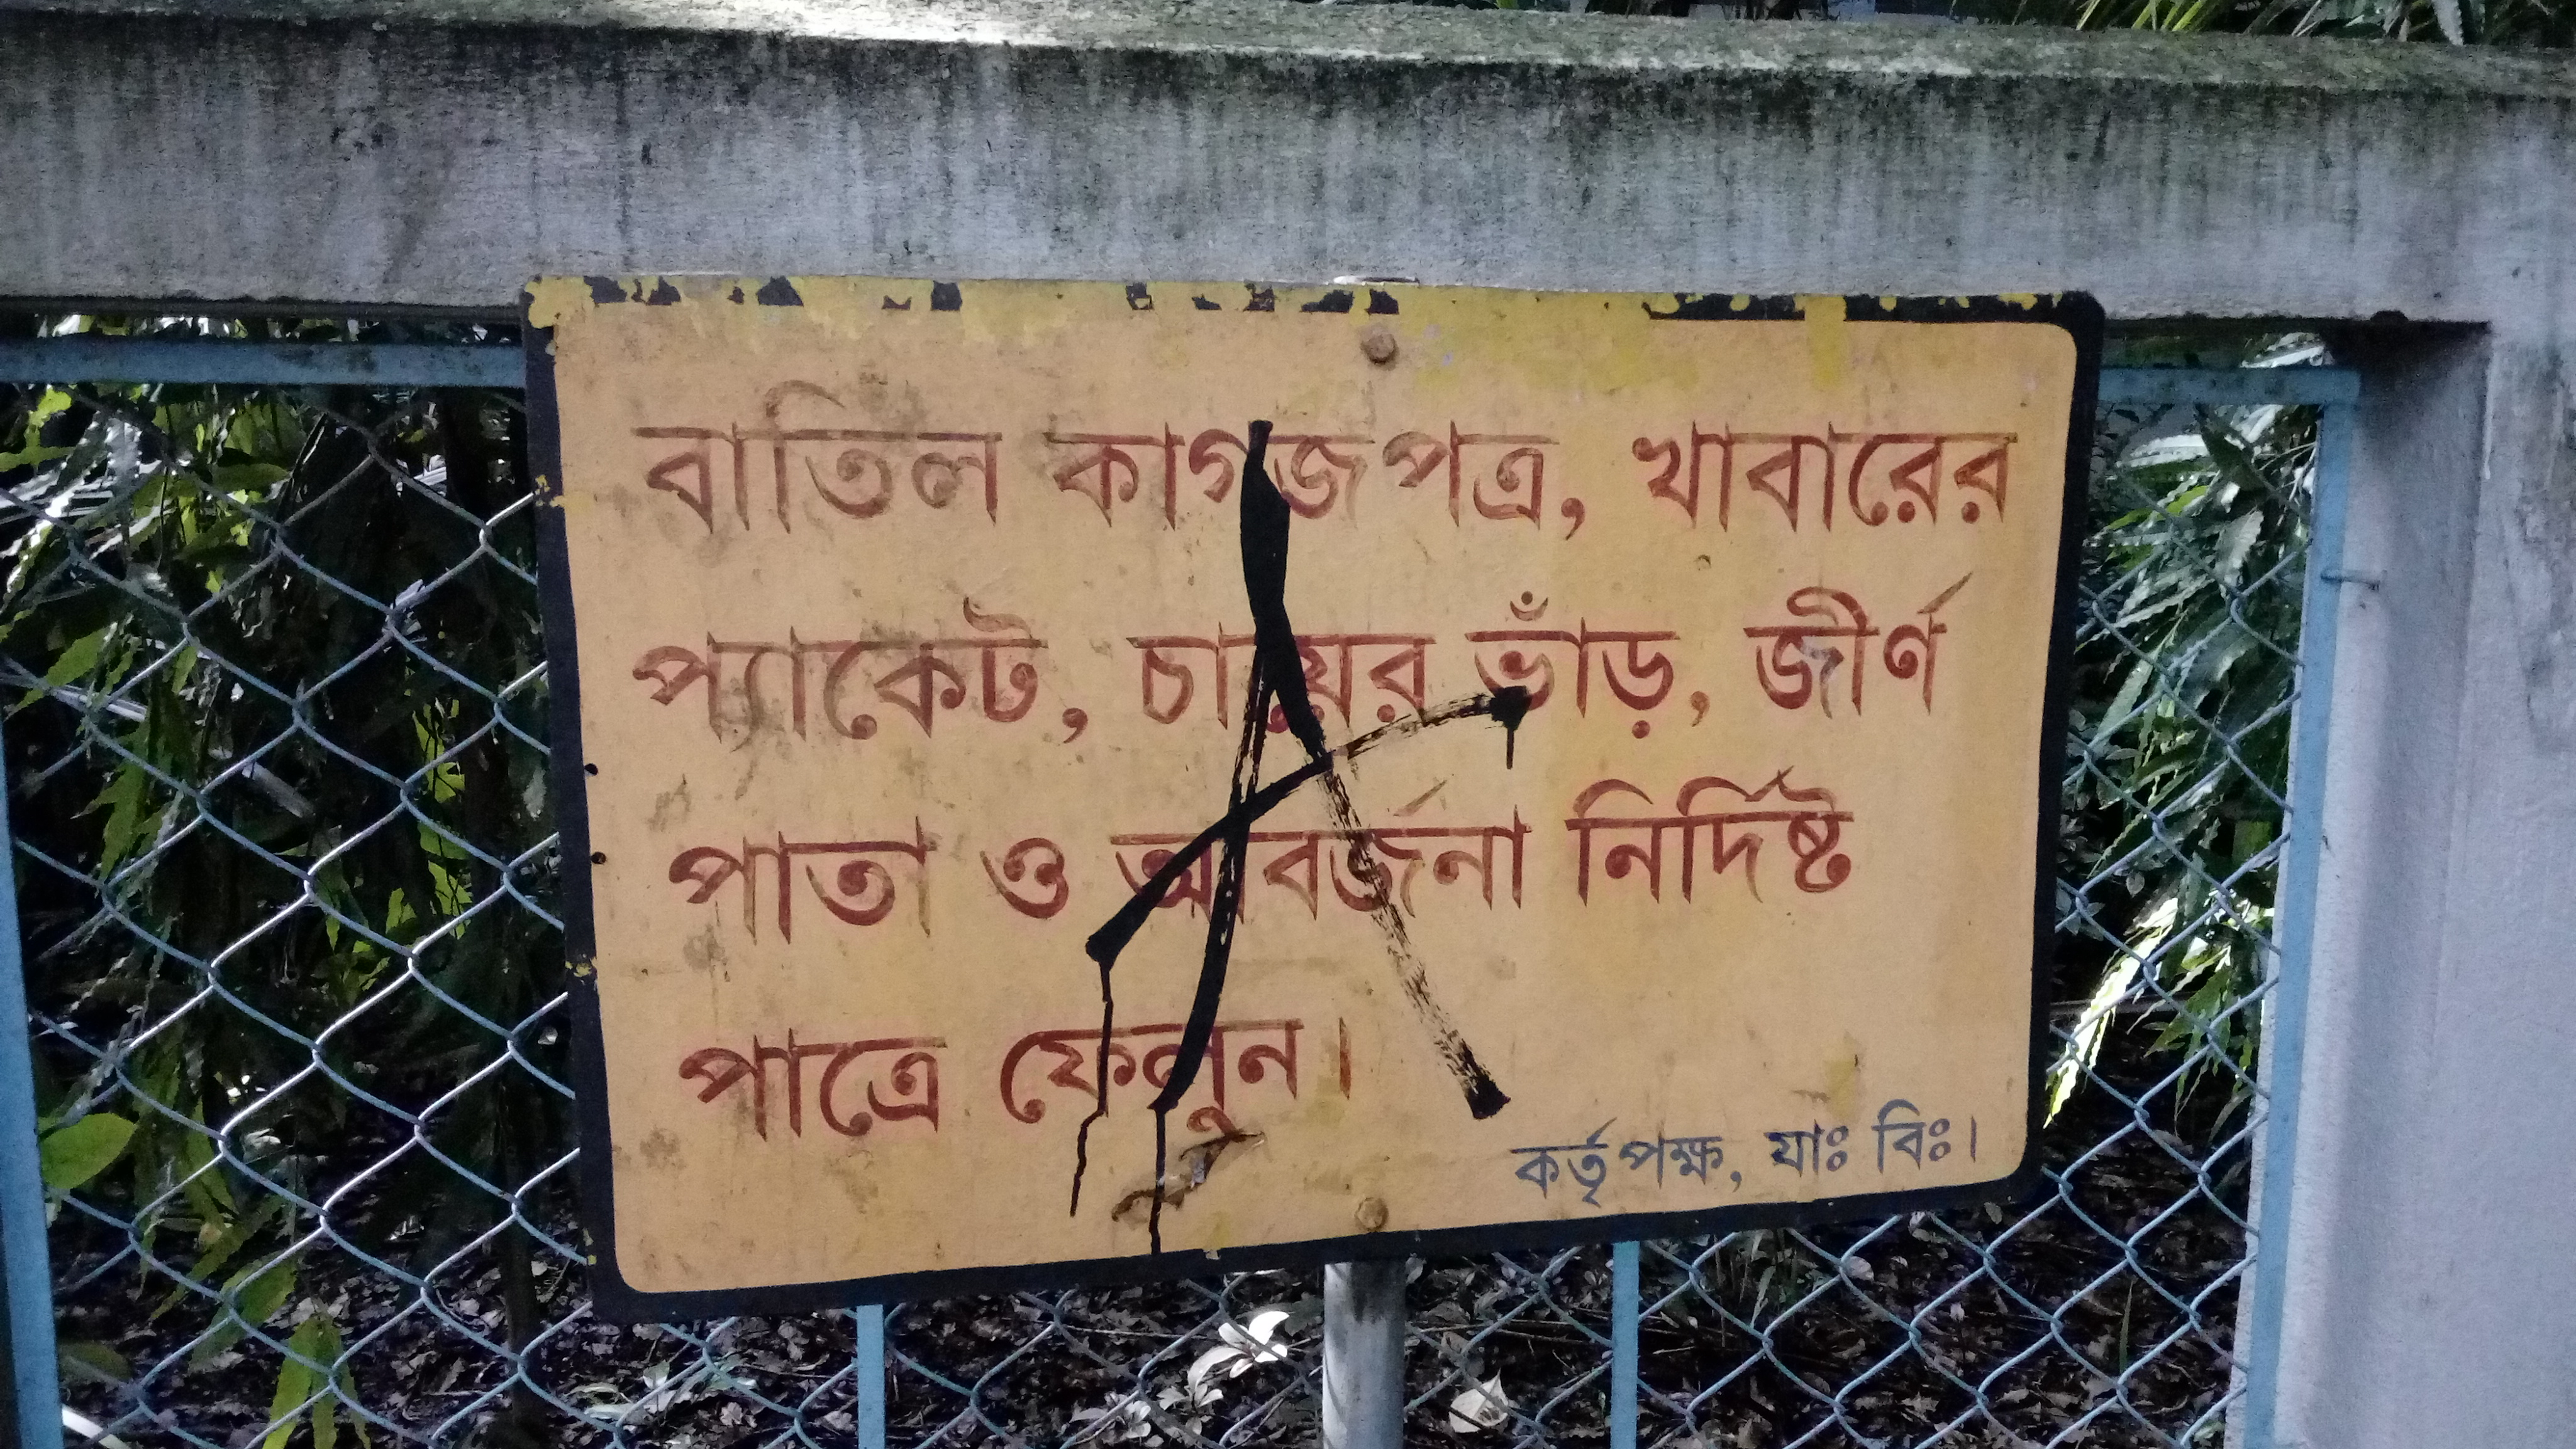 বাতিল কাগজপত্র, খাবারের
প্যাকেট, চায়ের ভাঁড়, জীর্ণ
পাতা ও আবর্জনা নির্দিষ্ট
পাত্রে ফেলুন।
কর্তৃপক্ষ, যাঃ বিঃ।